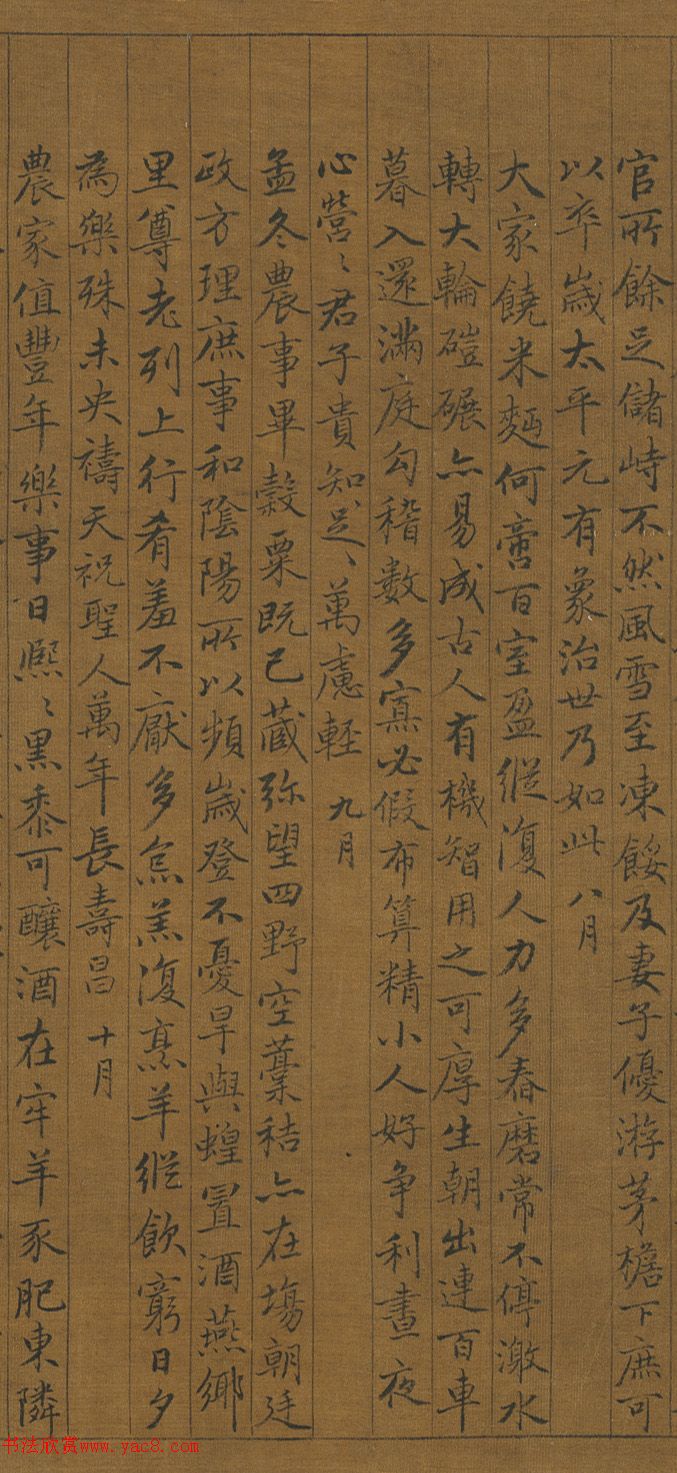 官所餘足儲峙不然風雪至凍餒及妻子優游茅檐下庶可
以卒歲太平元有象治世乃如此 八月
大家饒米麵何啻百室盈縱復人力多舂磨常不停激水
轉大輪磑碾亦易成古人有機智用之可厚生朝出連百車
暮入還滿庭勾稽數多寡必假布算精小人好爭利晝夜
心營〻君子貴知足〻萬慮輕 九月
孟冬農事畢穀粟既已藏弥望四野空藁秸亦在塲朝廷
政方理庶事和陰陽所以頻歲登不憂旱與蝗置酒燕鄉
里尊老列上行肴羞不厭多炰羔復烹羊縱飲窮日夕
為樂殊未央禱天祝聖人萬年長壽昌 十月
農家值豐年樂事日熙〻黑黍可釀酒在牢羊豕肥東隣
书法欣赏www.yac8.com